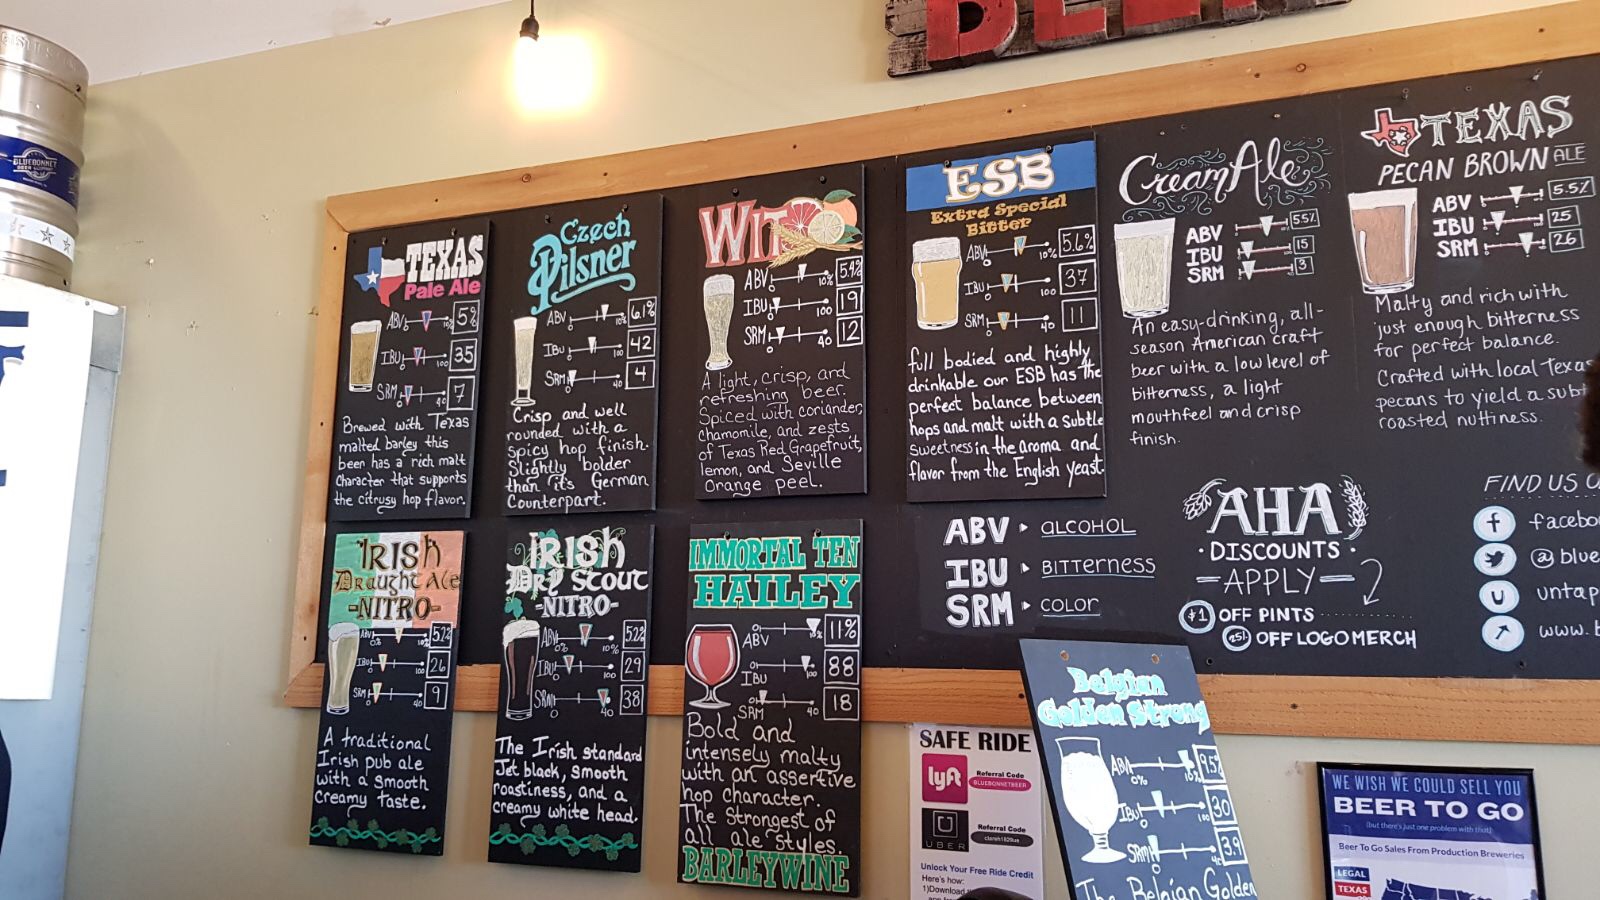 BEER
BLUEBONNET
BEER COMPANY
TEXAS
Pale Ale
ABV 0 10% 5%
IBU 0 100 35
SRM 0 40 7
Brewed with Texas
malted barley this
been has a rich malt
Character that supports
the citrusy hop flavor.
Czech
Pilsner
ABV 0 10% 6.1%
IBU 0 100 42
SRM 0 40 4
Crisp and well
rounded with a
spicy hop finish.
Slightly bolder
than it's German
Counterpart.
WIT
ABV 0 10% 5.4%
IBU 0 100 19
SRM 0 40 12
A light, crisp, and
refreshing beer.
Spiced with coriander,
chamomile, and zests
of Texas Red Grapefruit,
lemon, and Seville
Orange peel.
ESB
Extra Special
Bitter
ABV 0 10% 5.6%
IBU 0 100 37
SRM 0 40 11
full bodied and highly
drinkable our ESB has the
perfect balance between
hops and malt with a subtle
sweetness in the aroma and
flavor from the English yeast.
Cream Ale
ABV 5.5%
IBU 15
SRM 3
An easy-drinking, all-
season American craft
beer with a low level of
bitterness, a light
mouthfeel and crisp
finish.
TEXAS
PECAN BROWN ALE
ABV 5.5%
IBU 25
SRM 26
Malty and rich with
just enough bitterness
for perfect balance.
Crafted with local Texas
pecans to yield a subt
roasted nuttiness.
IRISH
Draught Ale
-NITRO-
ABV 0% 10% 5.2%
IBU 0 100 26
SRM 0 40 9
A traditional
Irish pub ale
with a smooth
creamy taste.
IRISH
DRY STOUT
-NITRO-
ABV 0 10% 5.2%
IBU 0 100 29
SRM 0 40 38
The Irish standard
Jet black, smooth
roastiness, and a
creamy white head.
IMMORTAL TEN
HAILEY
ABV 0 10% 11%
IBU 0 100 88
SRM 0 40 18
Bold and
intensely malty
with an assertive
hop character.
The Strongest of
all ale styles.
BARLEYWINE
ABV ▸ ALCOHOL
IBU ▸ BITTERNESS
SRM ▸ COLOR
AHA
• DISCOUNTS •
—APPLY—
$1 OFF PINTS
25% OFF LOGO MERCH
FIND US O
facebo
@blue
untap
www.b
Belgian
Golden Strong
ABV 0% 10% 9.5%
IBU 0 100 30
SRM 0 40 3.9
The Belgian Golden
SAFE RIDE
lyft
Referral Code
BLUEBONNETBEER
UBER
Referral Code
Unlock Your Free Ride Credit
Here's how:
1)Download
WE WISH WE COULD SELL YOU
BEER TO GO
(but there's just one problem with that)
Beer To Go Sales From Production Breweries
LEGAL
TEXAS